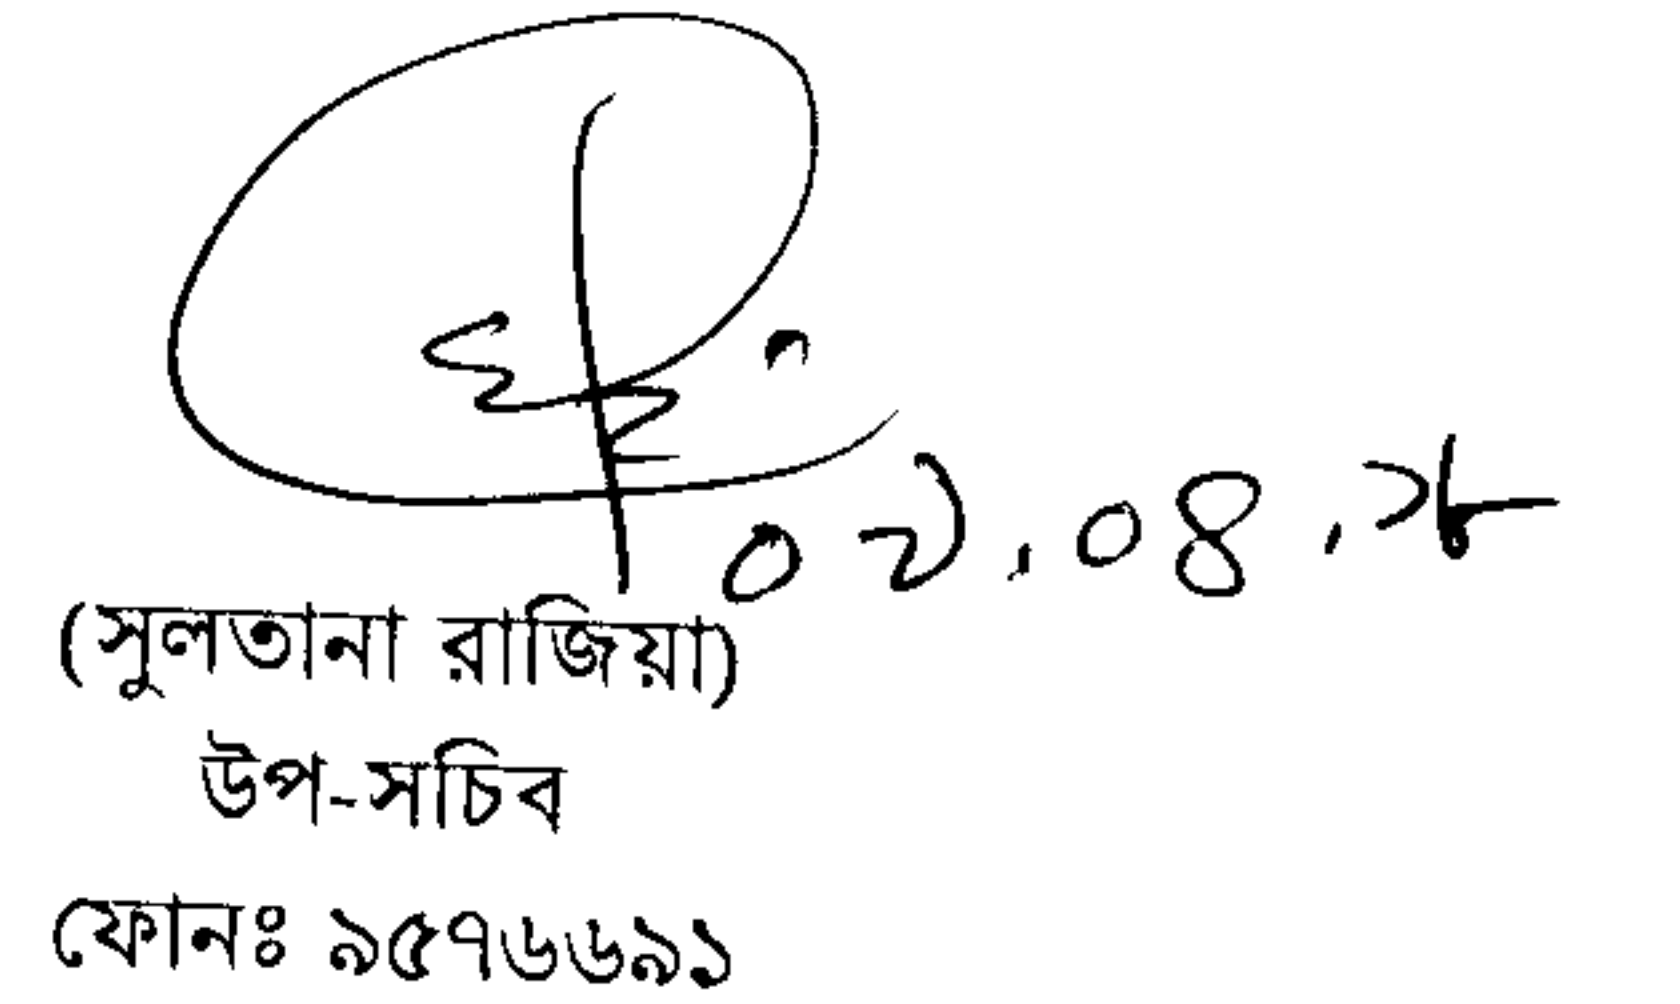 ০২.০৪.১৮
(সুলতানা রাজিয়া)
উপ-সচিব
ফোনঃ ৯৫৭৬৬৯১